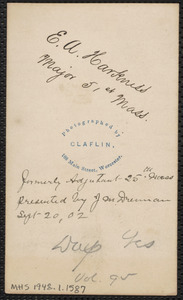 E. A. Harkness
Major 51st Mass.
Photographed by
CLAFLIN,
Main Street, Worcester.
formerly Adjutant 25th Mass
Presented by J. M. Drennan
Sept 20, 02
Dup Yes
Vol. 95
MHS 1948.1.1587